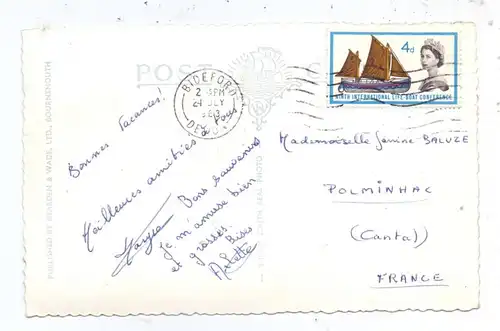 POST
BIDEFORD
2 - PM
21 JLY
1963
DEVON
4d
NINTH INTERNATIONAL LIFE-BOAT CONFERENCE
Bonnes Vacances!
Meilleures amitiés à tous
Bons souvenirs
je m'amuse bien
et grosses
Bises
Arlette
Mademoiselle Janine BALUZE
POLMINHAC
(Cantal)
FRANCE
PUBLISHED BY DEARDEN & WADE, LTD., BOURNEMOUTH
PHOTO